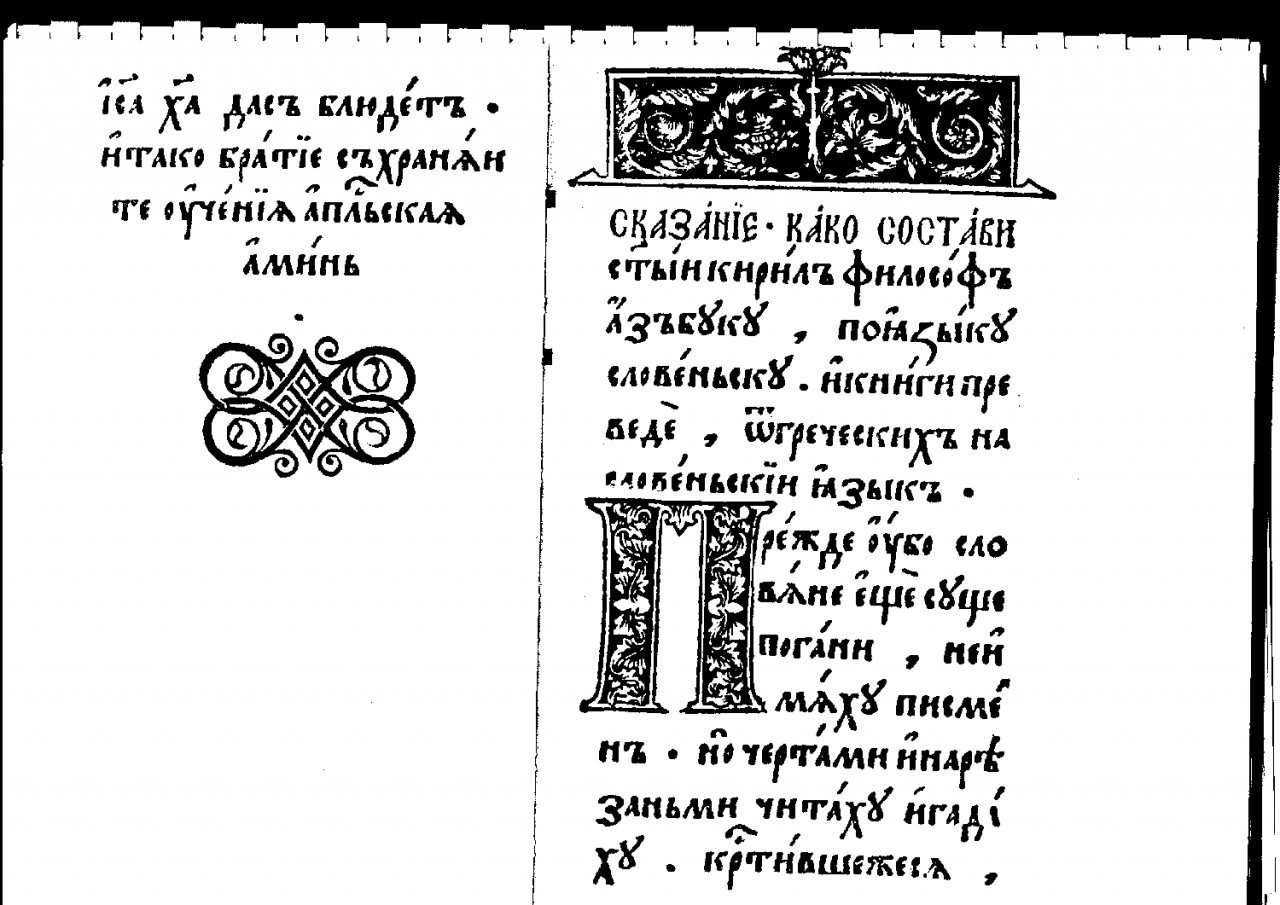 і҆с҃а х҃а да съблюде́тъ .
и҆тако бра́тїе съхранѧ́и
те ᲂу҆че́нїѧ а҆пⷭ҇льскаѧ
а҆ми́нь
сказа́нїе · ка́ко состави
ст҃ы́и кири́лъ фило́софъ
а҆́зъбꙋкꙋ , поꙗ҆зы́кꙋ
слове́ньскꙋ . и҆кни́ги пре
ведѐ , ѿгреческихъ на
слове́ньскїи ꙗ҆зыкъ .
Пре́жде ᲂу҆́бо сло
вѧ́не є҆щѐ сꙋще
пога́ни , неи҆
мѧ́хꙋ писме́
нъ . но̑ черта́ми и҆нарѣ
заньми чита́хꙋ и҆гаді́
хꙋ . крⷭ҇ти́вшежесѧ ,